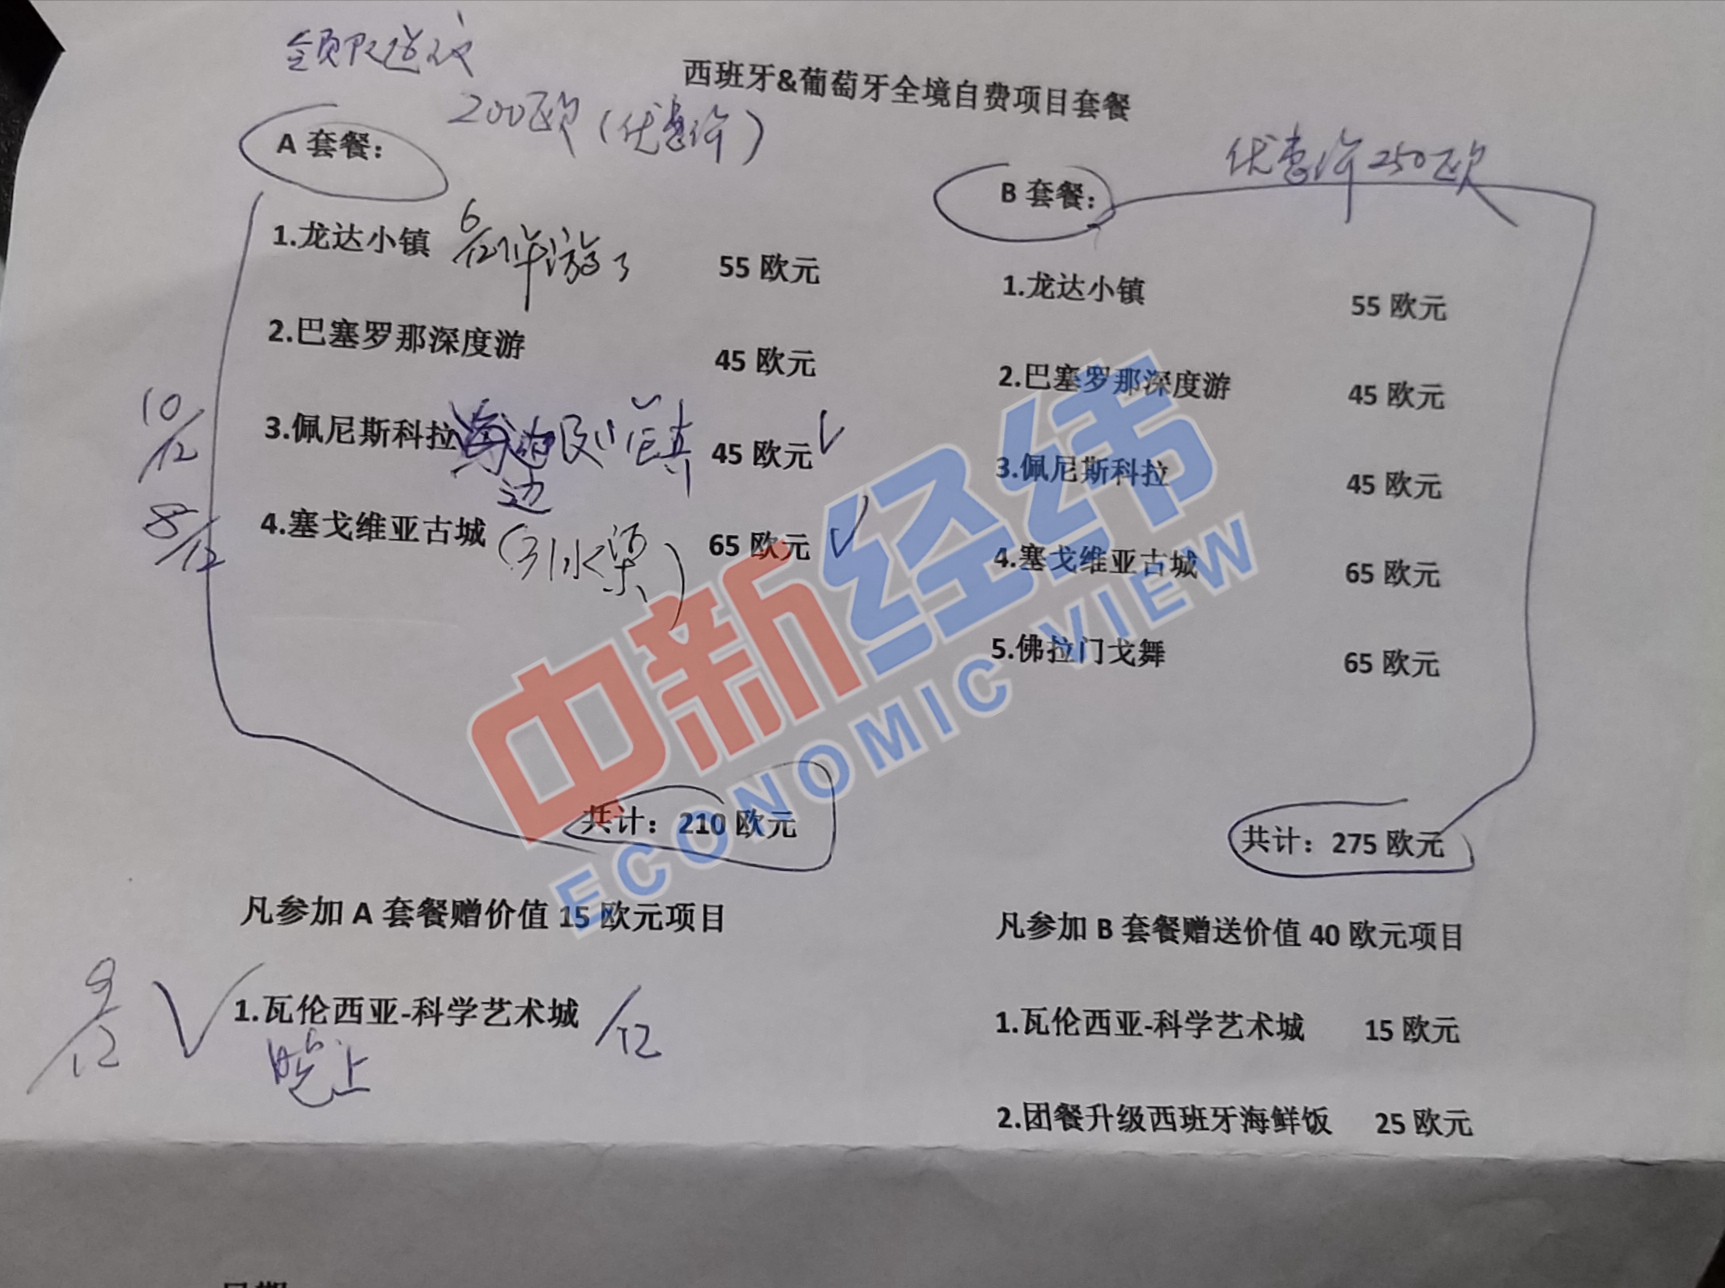 西班牙&葡萄牙全境自费项目套餐
200欧（优惠价）
A 套餐：
1.龙达小镇 55 欧元
2.巴塞罗那深度游 45 欧元
10/12
3.佩尼斯科拉 45 欧元
边
8/12
4.塞戈维亚古城（引水渠） 65 欧元
共计：210 欧元
凡参加 A 套餐赠价值 15 欧元项目
9/12
1.瓦伦西亚-科学艺术城 /12
晚上
优惠价250欧
B 套餐：
1.龙达小镇 55 欧元
2.巴塞罗那深度游 45 欧元
3.佩尼斯科拉 45 欧元
4.塞戈维亚古城 65 欧元
5.佛拉门戈舞 65 欧元
共计：275 欧元
凡参加 B 套餐赠送价值 40 欧元项目
1.瓦伦西亚-科学艺术城 15 欧元
2.团餐升级西班牙海鲜饭 25 欧元
中新经纬
ECONOMIC VIEW